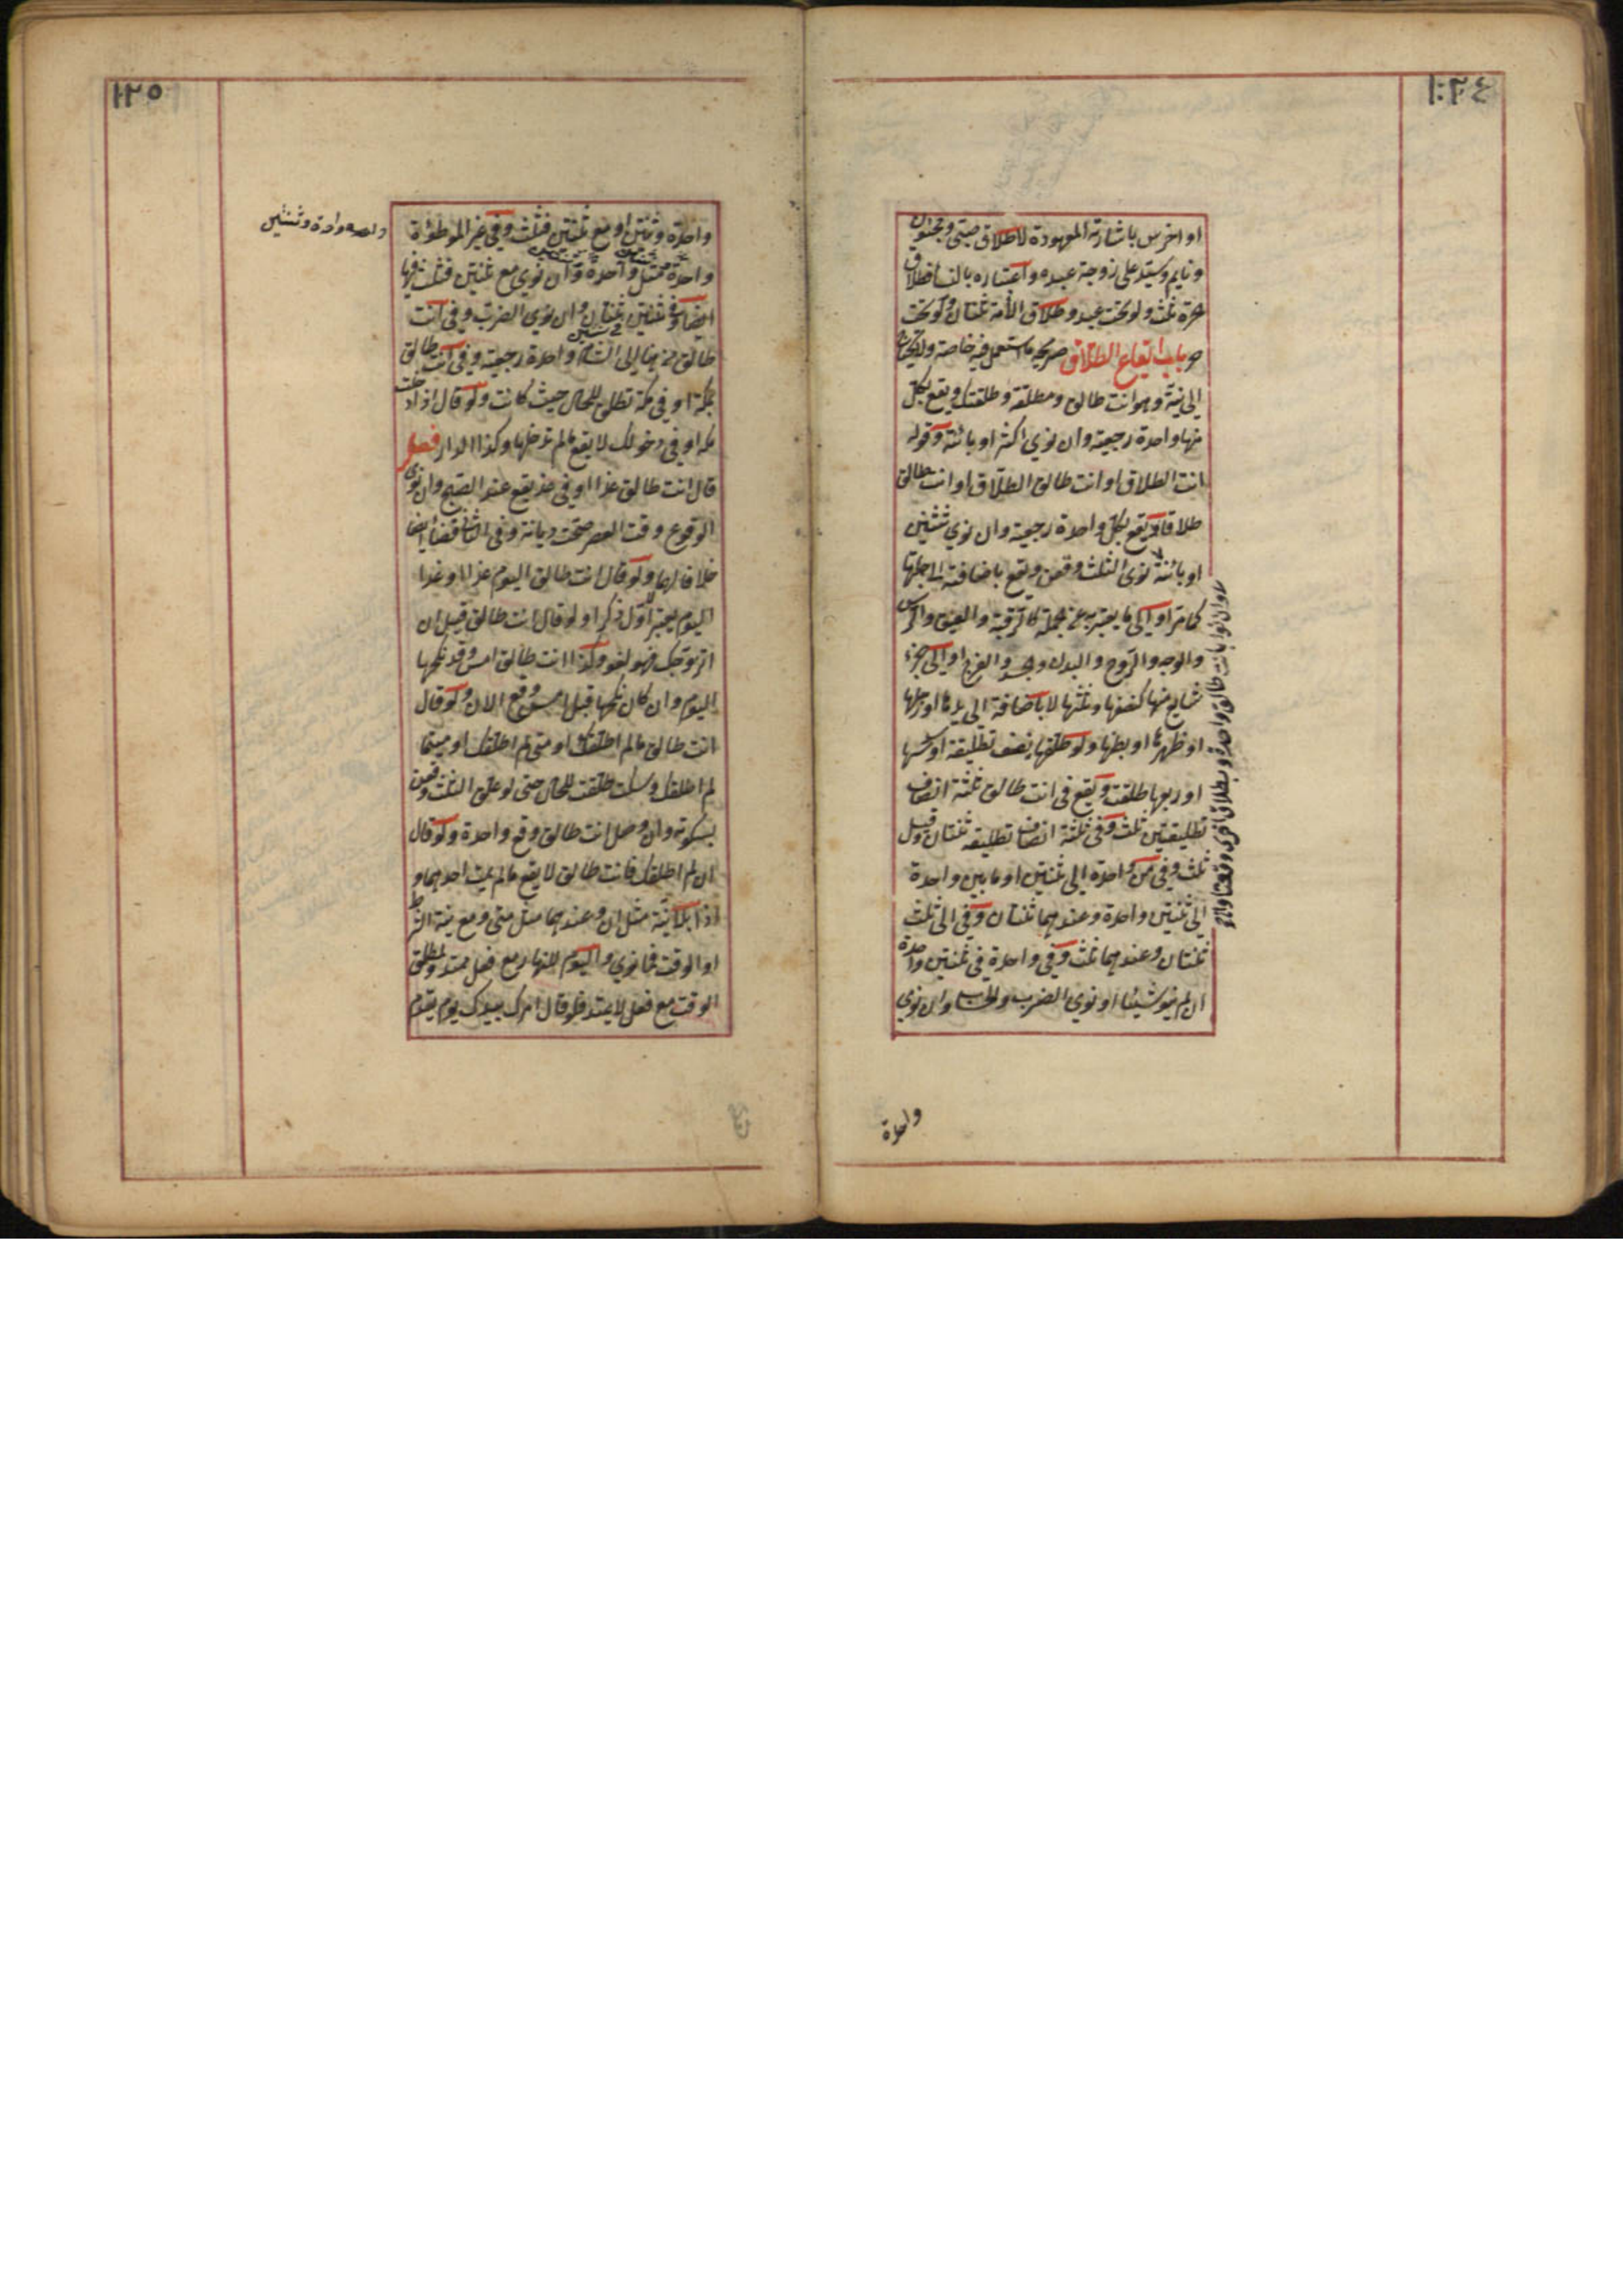 ١٢٤
او اخرس باشارته المعهودة لاطلاق صبى ومجنون
ونايم وسيد على زوجة عبده واعتباره بالنسا فطلاق
حرة ثلث ولو تحت عبد وطلاق الأمة ثنتان ولو تحت
حر باب ايقاع الطلاق صريحه ما استعمل فيه خاصة ولا يحتاج
الى نية وهو انت طالق ومطلقة وطلقتك ويقع بكل
منها واحدة رجعية وان نوى اكثر او بائنة وقوله
انت الطلاق او انت طالق الطلاق او انت طالق
طلاقا يقع بكل واحدة رجعية وان نوى ثنتين
او بائنة نوى الثلث وقعن ويقع باضافته الى جملتها
كما مر او الى ما يعبر به عن الجملة كالرقبة والعنق والرأس
والوجه والروح والبدن والجسد والفرج او الى جزء
شايع منها كنصفها وثلثها لا باضافة الى يدها او رجلها
او ظهرها او بطنها ولو طلقها نصف تطليقة او سدسها
او ربعها طلقت ويقع فى انت طالق ثلثة انصاف
تطليقتين ثلث وفى ثلثة انصاف تطليقة ثنتان وقيل
ثلث وفى من واحدة الى ثنتين او ما بين واحدة
الى ثنتين واحدة وعندهما ثنتان وفى الى ثلث
ثنتان وعندهما ثلث وفى واحدة فى ثنتين واحدة
ان لم ينو شيئا او نوى الضرب والحساب وان نوى
طالق واحدة وبطلاقا اخرى وقعتا
واحدة
١٢٥
واحدة وثنتين او مع ثنتين فثلث وفى غير الموطؤة
واحدة مثل واحدة وان نوى مع ثنتين فثلث فيها
ايضا وفى ثنتين ثنتان وان نوى الضرب وفى انت
طالق من هنا الى الشام واحدة رجعية وفى انت طالق
بمكة او فى مكة تطلق للحال حيث كانت ولو قال اذا دخلت
مكة او فى دخولك لا يقع ما لم تدخلها وكذا الدار فصل
قال انت طالق غدا او فى غد يقع عند الصبح وان نوى
الوقوع وقت العصر صحت ديانة وفى الثانى قضاء ايضا
خلافا لهما ولو قال انت طالق اليوم غدا او غدا
اليوم يعتبر اول ذكرا ولو قال انت طالق قبل ان
اتزوجك فهو لغو وكذا انت طالق امس وقد نكحها
اليوم وان كان نكحها قبل امس وقع الان ولو قال
انت طالق ما لم اطلقك او متى لم اطلقك او متيما
لم اطلقك وسكت طلقت للحال حتى لو علق الثلث وقعن
بسكوته وان وصل انت طالق وقع واحدة ولو قال
ان لم اطلقك فانت طالق لا يقع ما لم يمت احدهما و
اذا بلا نية مثل ان وعندهما مثل متى ومع نية الشرط
او الوقت فما نوى واليوم للنهار مع فعل ممتد ولمطلق
الوقت مع فعل لا يمتد فلو قال امرك بيدك يوم يقدم